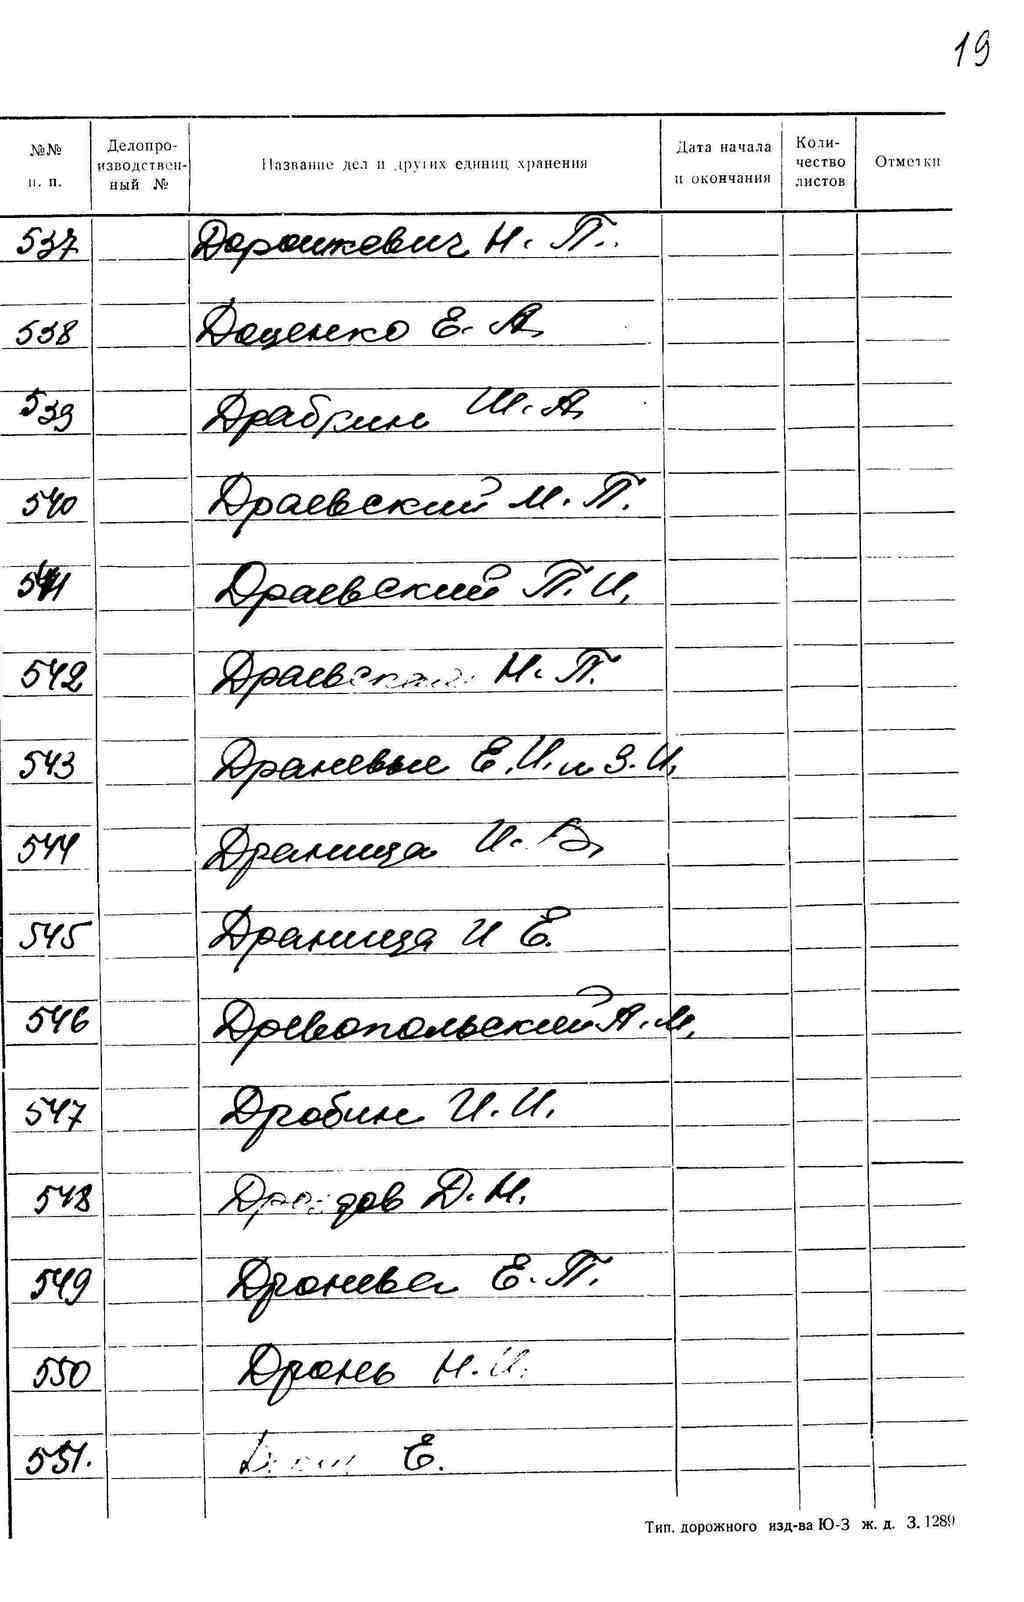 19
№№ п. п.
Делопро-
изводствен-
ный №
Название дел и других единиц хранения
Дата начала
и окончания
Коли-
чество
листов
Отметки
537 Дорошкевич Н. П.
538 Доценко Е. А.
539 Драбкин Ш. А.
540 Драевский М. П.
541 Драевский П. И.
542 Н. П.
543 Драневые Е. И. и З. И.
544 Драница И. В.
545 Драница И Е.
546 Древопольский А. М.
547 Дробин И. И.
548 Дроздов Д. Н.
549 Дронева Е. П.
550 Дронь Н. И.
551. Е.
Тип. дорожного изд-ва Ю-З ж. д. З. 1289